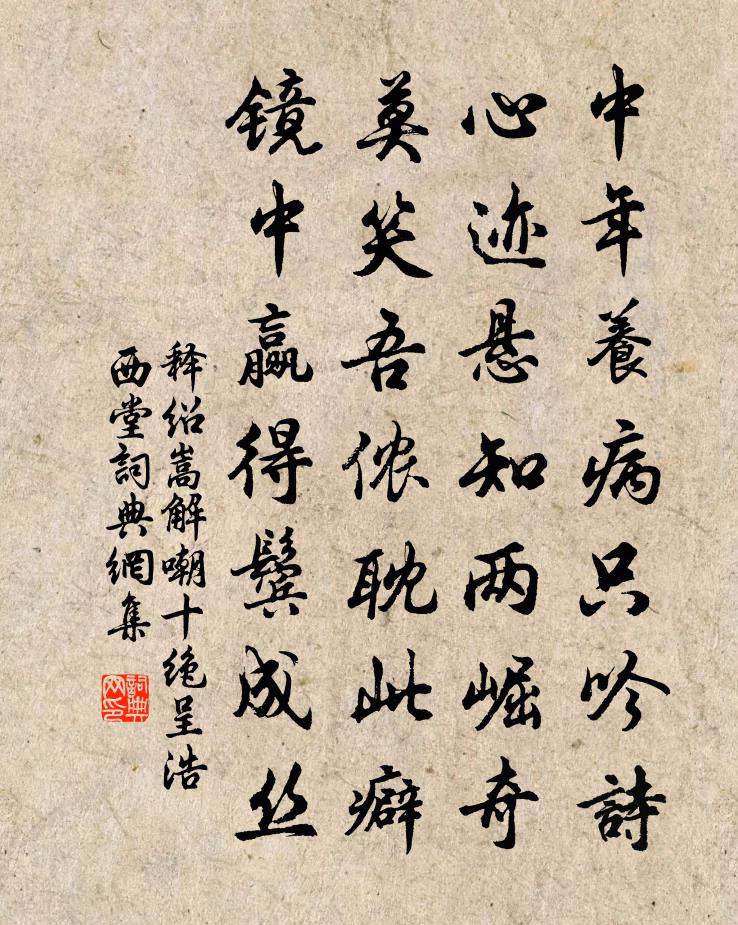 中年養病只吟詩
心迹悬知两崛奇
莫笑吾侬耽此癖
镜中赢得鬓成丝
释绍嵩解嘲十绝呈浩
西堂詞典網集
詞典
网印